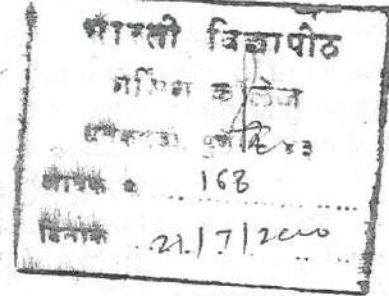 भारती विद्यापीठ
नर्सिंग कॉलेज
धनकवडी, पुणे ४३
आवक क्र 168
दिनांक 21/7/2000